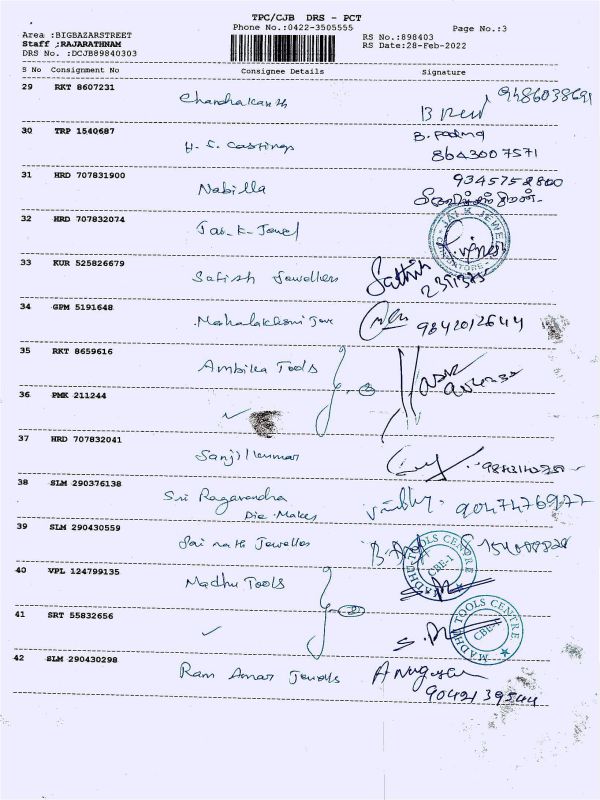 TPC/CJB DRS - PCT
Phone No.:0422-3505555
Page No.:3
Area :BIGBAZARSTREET
Staff ;RAJARATHNAM
DRS No. :DCJB89840303
RS No.:898403
RS Date:28-Feb-2022
S No Consignment No Consignee Details Signature
29 RKT 8607231 Chandrakanth 9486038691
30 TRP 1540687 H. S. Castings B. Padma
8643007571
31 HRD 707831900 Nabilla 9345752800
32 HRD 707832074 Jai-K-Jewel
JAI K JEWEL
33 KUR 525826679 Satish Jewellers Sathish
34 GPM 5191648 Mahalakshmi Jew 9842012644
35 RKT 8659616 Ambika Tools
36 PMK 211244 ✓
37 HRD 707832041 Sanjilkumar
38 SLM 290376138 Sri Ragavendha
Die Makes
39 SLM 290430559 Sai nath Jewelles
40 VPL 124799135 Madhu Tools 2
MADHU TOOLS CENTRE
CBE-1
41 SRT 55832656 ✓
MADHU TOOLS CENTRE
CBE-1
42 SLM 290430298 Ram Amar Jewells
9042139544